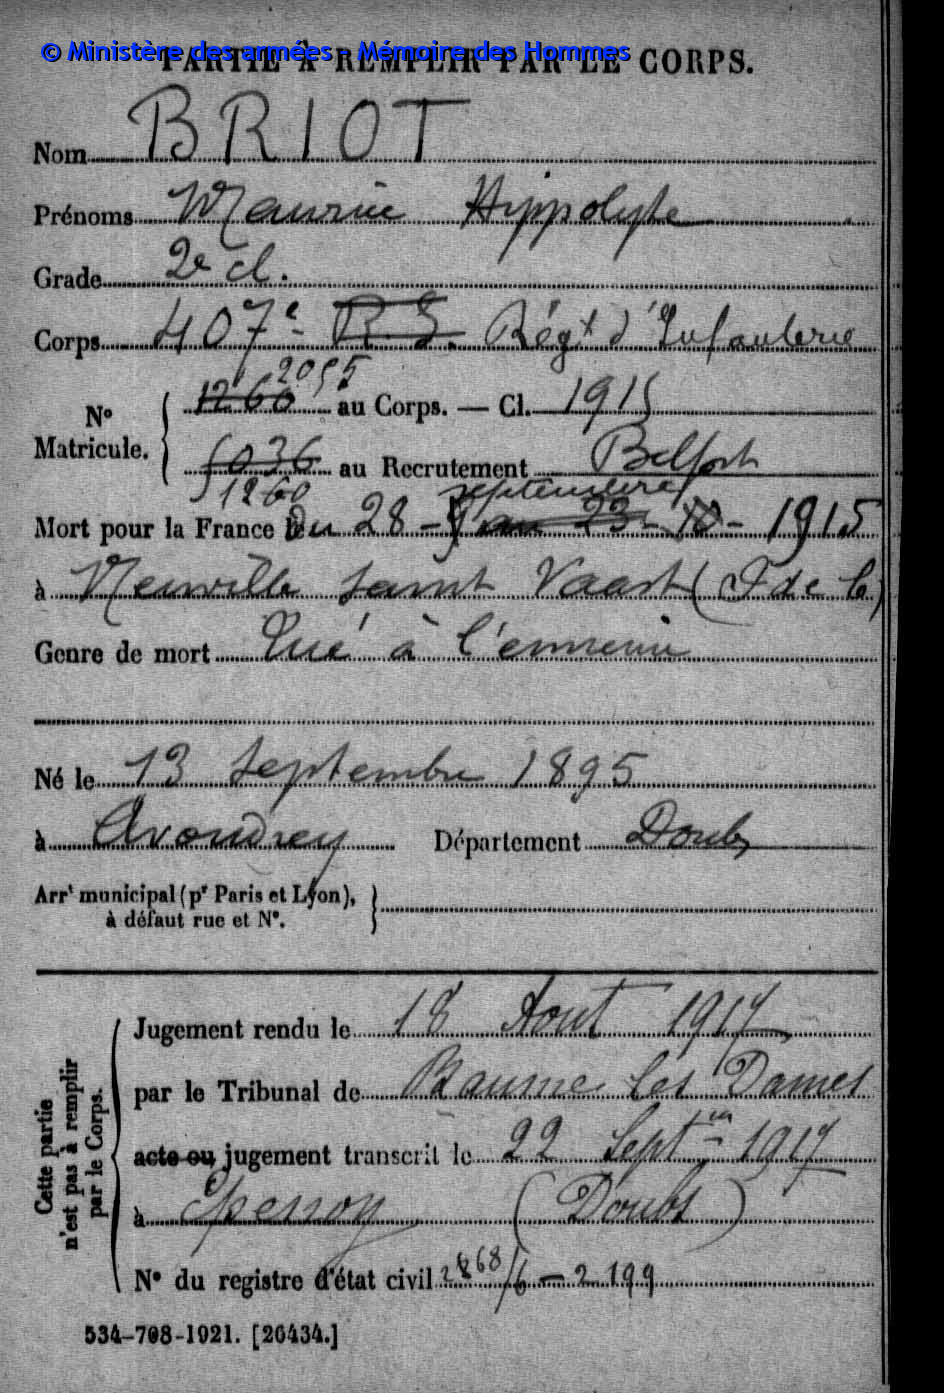 © Ministère des armées - Mémoire des Hommes
PARTIE À REMPLIR PAR LE CORPS.
Nom BRIOT
Prénoms Maurice Hippolyte
Grade 2e cl.
Corps 407e R.I. Régt d'Infanterie
2055
1260 au Corps. — Cl. 1915
N° Matricule.
5036 au Recrutement Belfort
1260 septembre
Mort pour la France le du 28 - 9 au 23 - 10 - 1915
à Neuville Saint Vaast (P de C)
Genre de mort Tué à l'ennemi
Né le 13 Septembre 1895
à Avoudrey Département Doubs
Arrt municipal (pr Paris et Lyon),
à défaut rue et N°.
Jugement rendu le 18 Aout 1917
par le Tribunal de Baume les Dames
acte ou jugement transcrit le 22 Septbre 1917
à Epenoy (Doubs)
N° du registre d'état civil 2868/6 - 2199
Cette partie
n'est pas à remplir
par le Corps.
534-708-1921. [26434.]